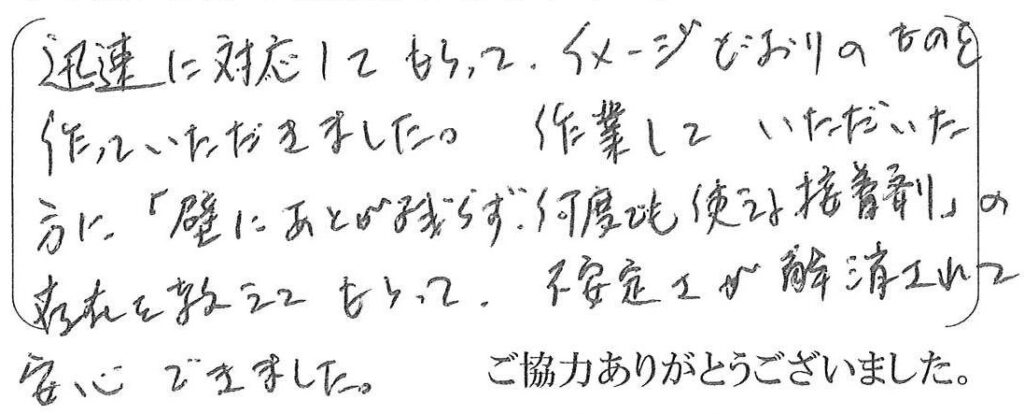 迅速に対応してもらって、イメージどおりのものを
作っていただきました。 作業して いただいた
方に、「壁にあとが残らず、何度でも使える接着剤」の
存在を教えてもらって、不安定さが解消されて
安心できました。 ご協力ありがとうございました。